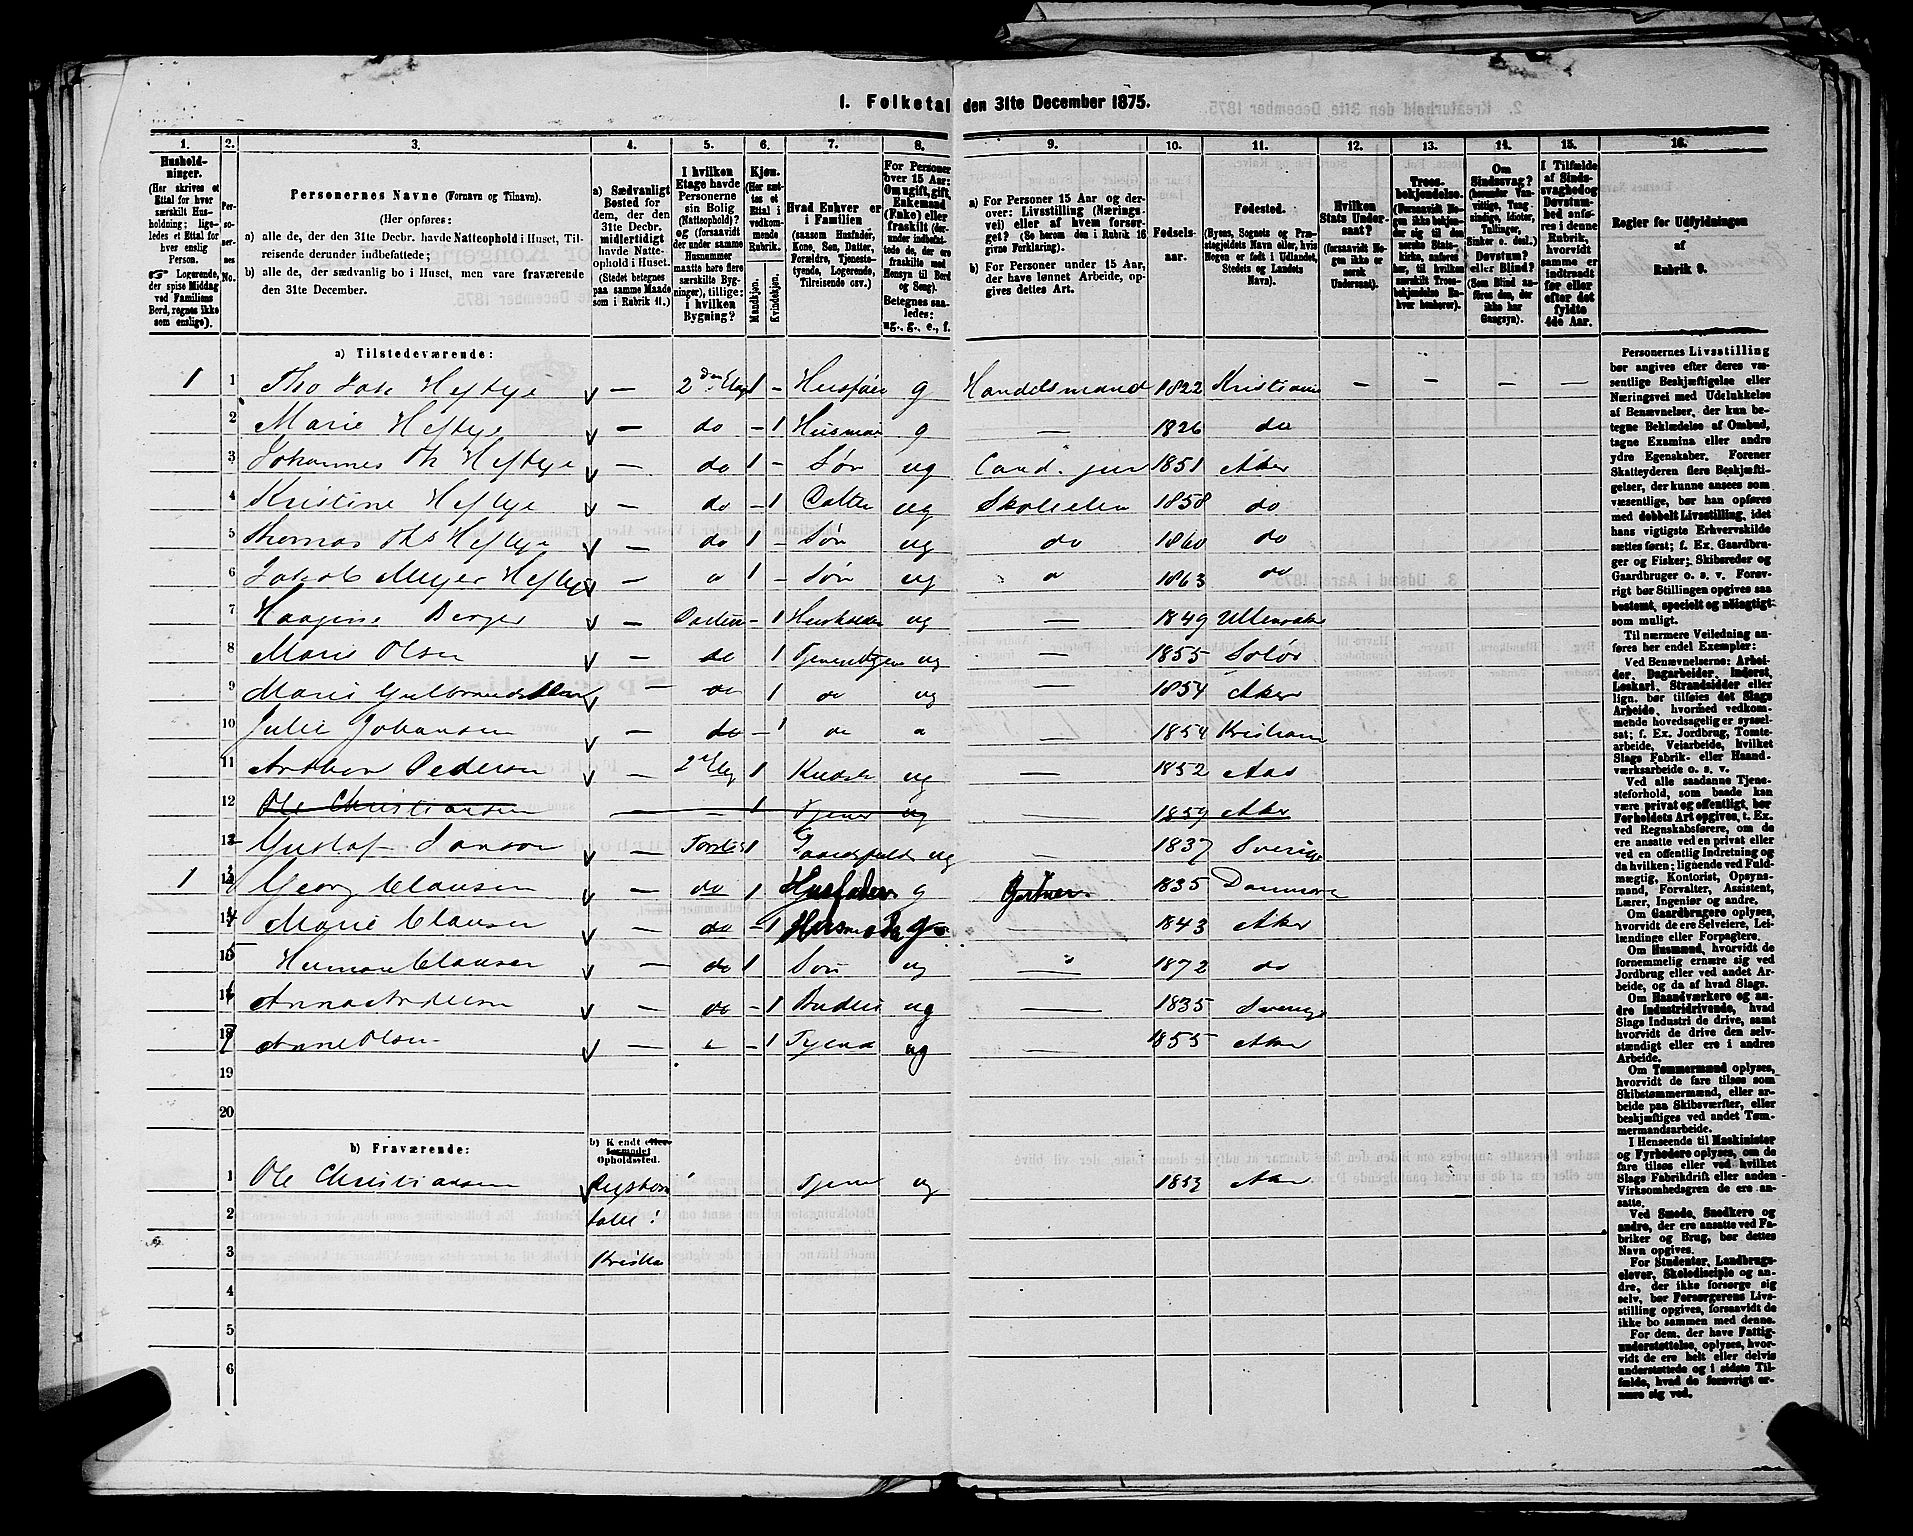 1. Folketal den 31te December 1875.
1. 2. 3. 4. 5. 6. 7. 8. 9. 10. 11. 12. 13. 14. 15. 16.
Hushold-
ninger.
(Her skrives et
Ettal for hver
særskilt Hus-
holdning; lige-
ledes et Ettal for
hver enslig
Person.
☞ Logerende,
der spise Middag
ved Familiens
Bord, regnes ikke
som enslige).
Per-
so-
ner-
nes
No.
Personernes Navne (Fornavn og Tilnavn).
(Her opføres:
a) alle de, der den 31te Decbr. havde Natteophold i Huset, Til-
reisende derunder indbefattede;
b) alle de, der sædvanlig bo i Huset, men vare fraværende
den 31te December.
a) Sædvanligt
Bosted for
dem, der den
31te Decbr.
midlertidigt
havde Natte-
ophold i Huset.
(Stedet betegnes
paa samme Maade
som i Rubrik 11.)
I hvilken
Etage havde
Personerne
sin Bolig
(Natteophold)?
og (forsaavidt
der under samme
Husnummer
maatte høre flere
særskilte Byg-
ninger), tillige:
i hvilken
Bygning?
Kjøn.
(Her sæt-
tes et
Ettal i
vedkom-
mende
Rubrik.
Mandkjøn.
Kvindekjøn.
Hvad Enhver er
i Familien
(saasom Husfader,
Kone, Søn, Datter,
Forældre, Tjeneste-
tyende, Logerende,
Tilreisende osv.)
For Personer
over 15 Aar:
Om ugift, gift,
Enkemand
(Enke) eller
fraskilt (der-
under indbefat-
tede de, der ere
fraskilte med
Hensyn til Bord
og Seng).
Betegnes saa-
ledes:
ug., g., e., f.
a) For Personer 15 Aar og der-
over: Livsstilling (Nærings-
vei) eller af hvem forsør-
get? (Se herom den i Rubrik 16
givne Forklaring).
b) For Personer under 15 Aar,
der have lønnet Arbeide, op-
gives dettes Art.
Fødsels-
aar.
Fødested.
(Byens, Sognets og Præ-
stegjeldets Navn eller, hvis
Nogen er født i Udlandet,
Stedets og Landets
Navn).
Hvilken
Stats Under-
saat?
(forsaavidt No-
gen ikke er
norsk
Undersaat).
Troes-
bekjendelse.
(Forsaavidt No-
gen ikke beken-
der sig til den
norske Stats-
kirke, anføres
her, til hvilken
særskilt Troes-
bekjendelse En-
hver henhører).
Om
Sindssvag?
(herunder Van-
vittige, Tung-
sindige, Idioter,
Tullinger,
Sinker o. desl.)
Døvstum?
eller Blind?
(Som Blind an-
føres den, der
ikke har
Gangsyn).
I Tilfælde
af Sinds-
svaghed og
Døvstum-
hed anfø-
res i denne
Rubrik,
hvorvidt
samme er
indtraadt
før eller
efter det
fyldte
4de Aar.
Regler for Udfyldningen
af
Rubrik 9.
a) Tilstedeværende:
1 1 Tho Joh Heftye — 2den Etag 1 — g Handelsmand 1822 — — — —
2 Marie Heftye — do — 1 g — 1826 do
3 Johannes Th Heftye — do 1 — Søn ug Cand. jur 1851 Aker
4 Kristine Heftye — do — 1 ug 1858 do
5 Thomas Ths Heftye — do 1 — Søn ug do 1860 do
6 Jakob Meyer Heftye — 1 — Søn ug 1863 do
7 Berger — — 1 ug — 1849
8 Marie Olsen — do 1 ug — 1855 Solør
9 Marie — do 1 do ug — 1854 Aker
10 Julie Johansen — do — 1 do — 1854
11 Pedersen — 1 Kudsk ug — 1852 Aas
12 Ole Christiansen — 1 Tjener ug 1859 Aker
Gustaf — 1 ug — 1837 Sverige
1 Georg Clausen — do 1 Husfader g Gartner 1835 Danmark
Marie Clausen — do — 1 Husmoder g — 1843 Aker
Herman Clausen — do 1 Søn ug — 1872 do
Anna — do — 1 ug — 1835 Sverige
Anne Olsen — — 1 Tjend ug — 1855 Aker
19
20
b) Fraværende:
b) Kjendt eller
formodet
Opholdssted.
1 Ole Christiansen Tjener ug Aker
2
3 Kristia
4
5
6
Personernes Livsstilling
bør angives efter deres væ-
sentlige Beskjæftigelse eller
Næringsvei med Udelukkelse
af Benævnelser, der kun be-
tegne Beklædelse af Ombud,
tagne Examina eller andre
ydre Egenskaber. Forener
Skatteyderen flere Beskjæfti-
gelser, der kunne ansees som
væsentlige, bør han opføres
med dobbelt Livsstilling, idet
hans vigtigste Erhvervskilde
sættes først; f. Ex. Gaardbru-
ger og Fisker; Skibsreder og
Gaardbruger o. s. v. Forøv-
rigt bør Stillingen opgives saa
bestemt, specielt og nøiagtigt
som muligt.
Til nærmere Veiledning an-
føres her endel Exempler:
Ved Benævnelserne: Arbei-
der, Dagarbeider, Inderst,
Løskarl, Strandsidder eller
lign. bør tilføies det Slags
Arbeide, hvormed vedkom-
mende hovedsagelig er syssel-
sat; f. Ex. Jordbrug, Tomte-
arbeide, Veiarbeide, hvilket
Slags Fabrik- eller Haand-
værksarbeide o. s. v.
Ved alle saadanne Tjene-
steforhold, som baade kan
være privat og offentligt, bør
Forholdets Art opgives, t. Ex.
ved Regnskabsførere, om de
ere ansatte ved en privat eller
ved en offentlig Indretning og
da hvilken; lignende ved Fuld-
mægtig, Kontorist, Opsyns-
mand, Forvalter, Assistent,
Lærer, Ingeniør og andre.
Om Gaardbrugere oplyses,
hvorvidt de ere Selveiere, Lei-
lændinge eller Forpagtere.
Om Husmænd, hvorvidt de
fornemmelig ernære sig ved
Jordbrug eller ved andet Ar-
beide, og da af hvad Slags.
Om Haandværkere og an-
dre Industridrivende, hvad
Slags Industri de drive, samt
hvorvidt de drive den selv-
stændigt eller ere i andres
Arbeide.
Om Tømmermænd oplyses,
hvorvidt de fare tilsøs som
Skibstømmermænd, eller ar-
beide paa Skibsværfter, eller
beskjæftiges ved andet Tøm-
mermandsarbeide.
I Henseende til Maskinister
og Fyrbødere oplyses, om de
fare tilsøs eller ved hvilket
Slags Fabrikdrift eller anden
Virksomhedsgren de ere an-
satte.
Ved Smede, Snedkere og
andre, der ere ansatte ved Fa-
briker og Brug, bør dettes
Navn opgives.
For Studenter, Landbrugs-
elever, Skoledisciple og an-
dre, der ikke forsørge sig
selv, bør Forsørgerens Livs-
stilling opgives, forsaavidt de
ikke bo sammen med denne.
For dem, der have Fattig-
understøttelse, oplyses, hvor-
vidt de ere helt eller delvis
understøttede og i sidste Til-
fælde, hvad de forøvrigt er-
nære sig ved.